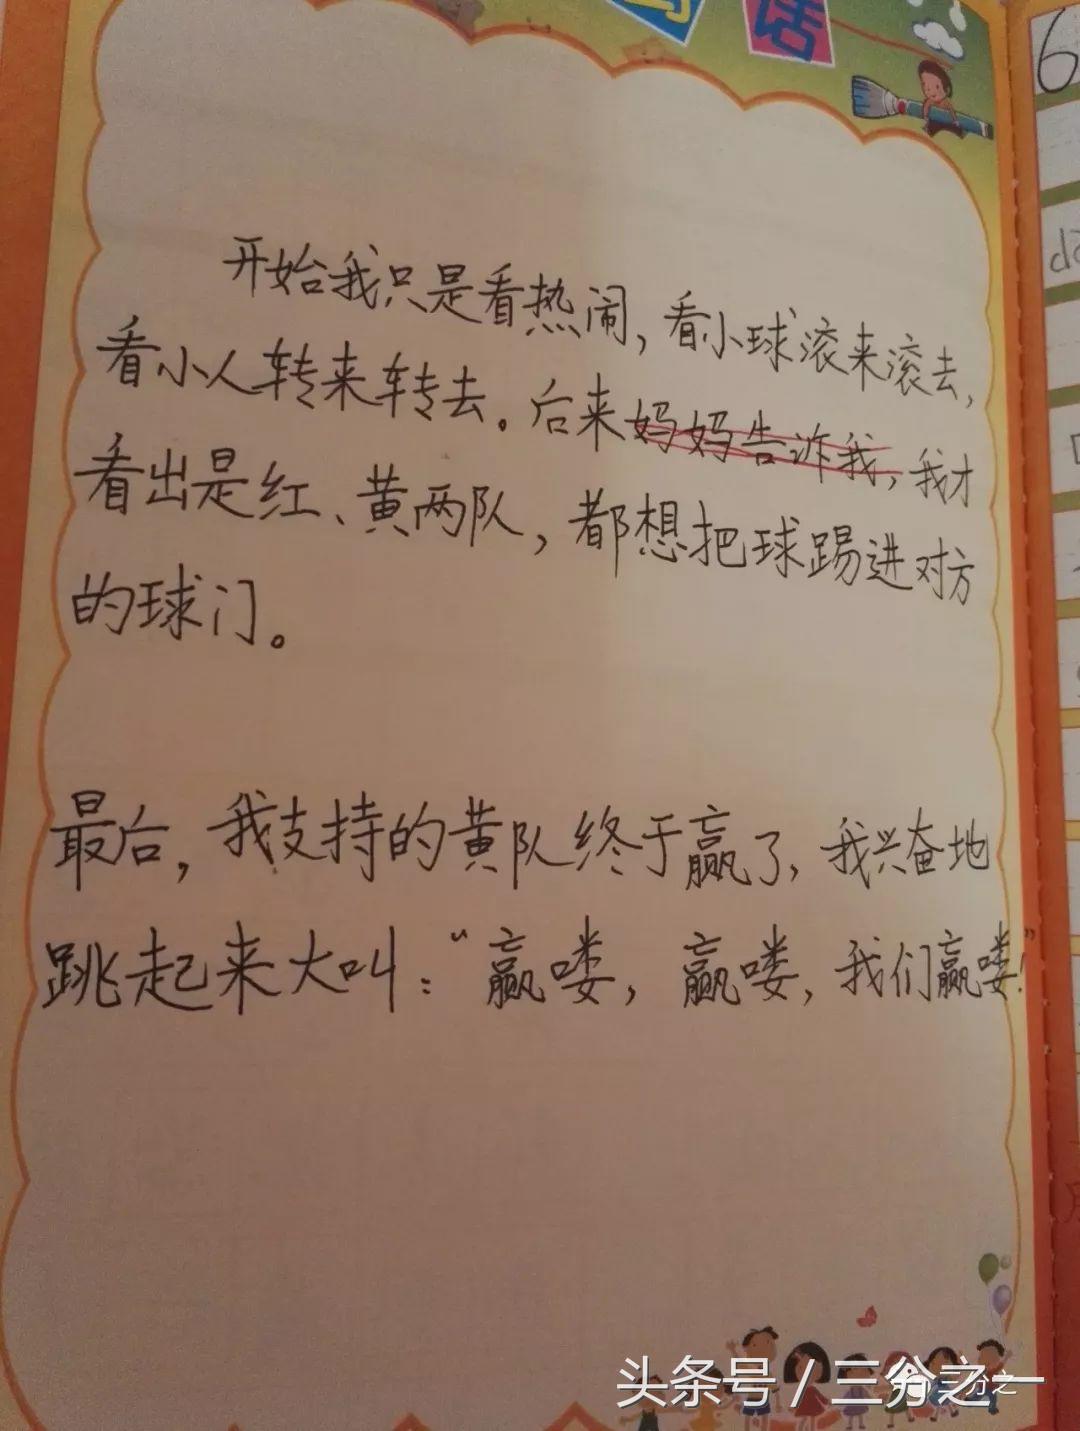 写话
6
开始我只是看热闹，看小球滚来滚去，
看小人转来转去。后来妈妈告诈我，我才
看出是红、黄两队，都想把球踢进对方
的球门。
最后，我支持的黄队终于赢了，我兴奋地
跳起来大叫：“赢喽，赢喽，我们赢喽！”
头条号 / 三分之一
三分之一